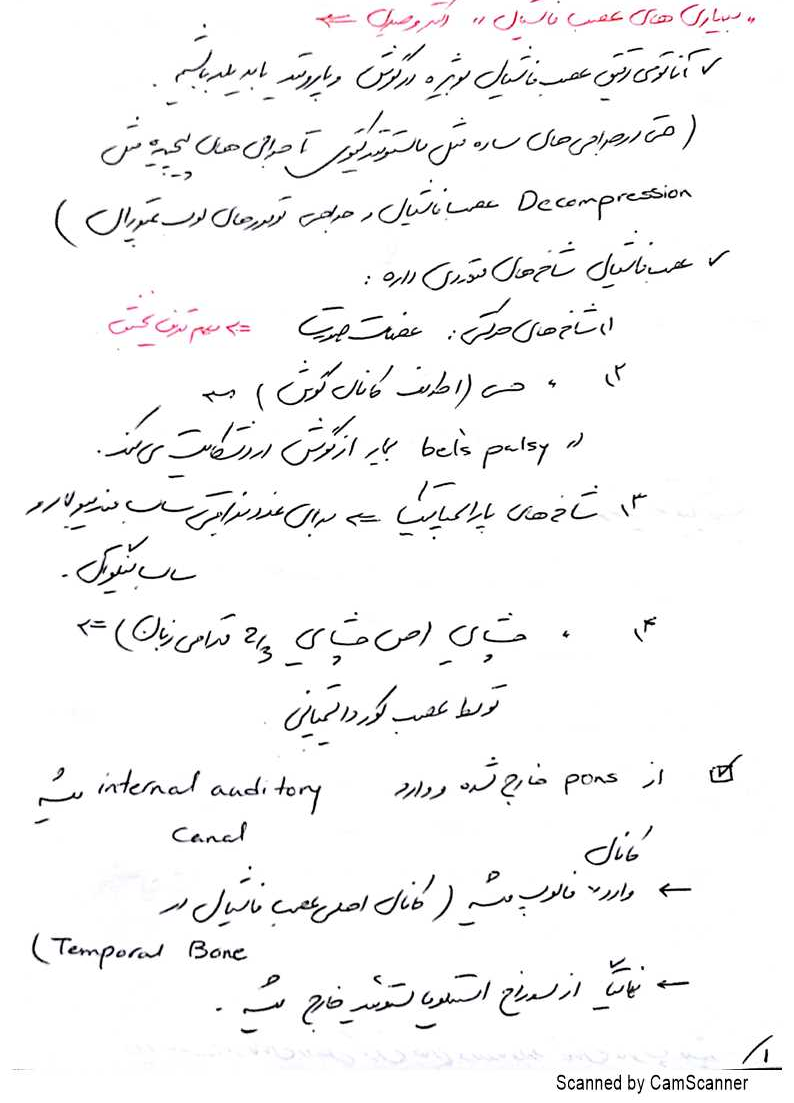 "بیماری های عصب فاشیال" دکتر وصیلی ⇐
✓ آناتومی دقیق عصب فاشیال بویژه در گوش و پاروتید باید بلد باشیم.
(حتی در جراحی های ساده مثل ماستوئیدکتومی تا جراحی های پیچیده مثل
Decompression عصب فاشیال و جراحی تومورهای لوب تمپورال)
✓ عصب فاشیال شاخه های متعددی داره:
۱) شاخه های حرکتی: عضلات صورت ⇐ مهم ترین بخش
۲) " حسی (اطراف کانال گوش) ⇐
در bel's palsy بیمار از گوش درد شکایت می کند.
۳) شاخه های پاراسمپاتیک ⇐ برای غدد بزاقی ساب مندیبولار و
ساب لینگوال.
۴) " چشایی (حس چشایی 2/3 قدامی زبان) ⇐
توسط عصب کورداتمپانی
☑ از pons خارج شده و وارد internal auditory میشه
canal
کانال
← وارد فالوپ میشه (کانال اصلی عصب فاشیال در
Temporal Bone)
← نهایتاً از سوراخ استیلوماستوئید خارج میشه.
۱/
Scanned by CamScanner